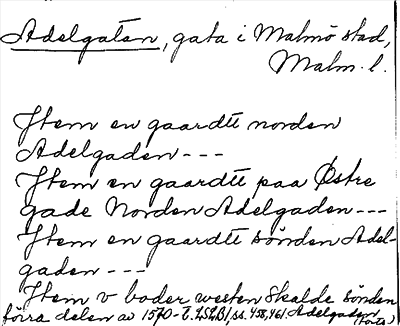 Adelgatan, gata i Malmö stad,
Malm. l.
Item en gaardtt norden
Adelgaden ---
Item en gaardtt paa Østre
gade Norden Adelgaden ---
Item en gaardtt sönden Adel-
gaden ---
Item v boder westen Skalde sönden
förra delen av 1570-t. LSLB1, ss. 458, 461. Adelgaden
(forts.)